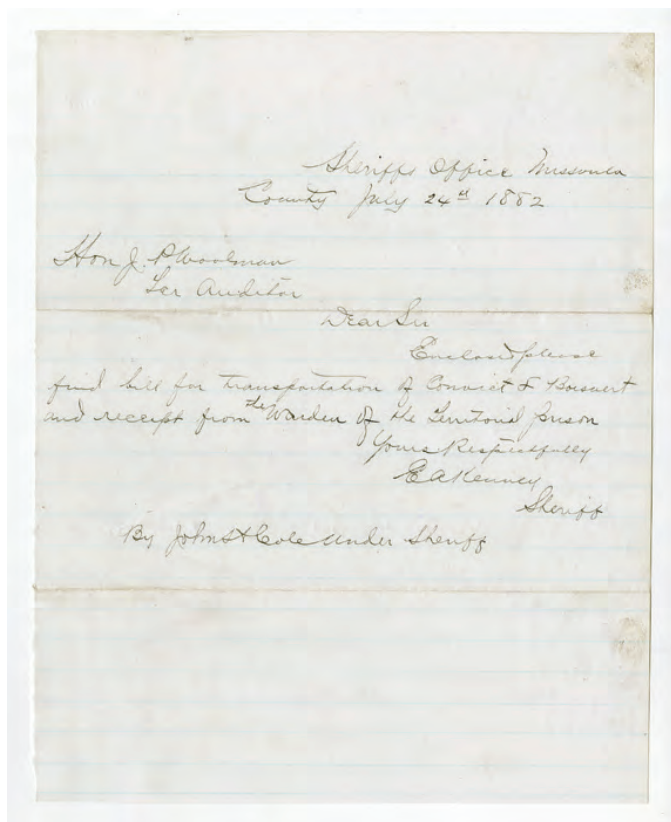 Sheriffs Office Missoula
County July 24th 1882
Hon J. P Woolman
Ter Auditor
Dear Sir
Enclosed please
find bill for transportation of Convict F Boisvert
and receipt from the Warden of the Territorial prison
Yours Respectfully
E A Kenney
Sheriff
By John S Cole Under Sheriff